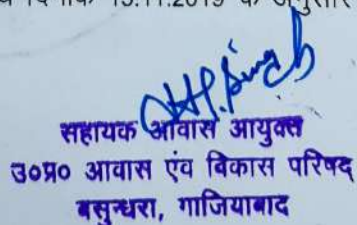 दिनांक 15.11.2019 के अनुसार
सहायक आवास आयुक्त
उ०प्र० आवास एंव विकास परिषद
बसुन्धरा, गाजियाबाद